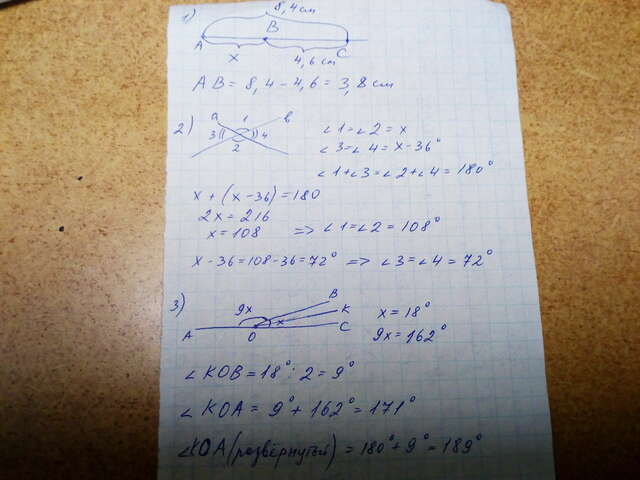 8,4 см
1)
A B C
x 4,6 см
AB = 8,4 - 4,6 = 3,8 см
2)
a 1 b
3 4
2
∠1=∠2 = x
∠3=∠4 = x-36°
∠1+∠3=∠2+∠4 = 180°
x + (x-36) = 180
2x = 216
x = 108 => ∠1=∠2 = 108°
x - 36 = 108-36 = 72° => ∠3=∠4 = 72°
3)
9x B
x K
A O C
x = 18°
9x = 162°
∠KOB = 18° : 2 = 9°
∠KOA = 9° + 162° = 171°
∠KOA (развёрнутый) = 180° + 9° = 189°